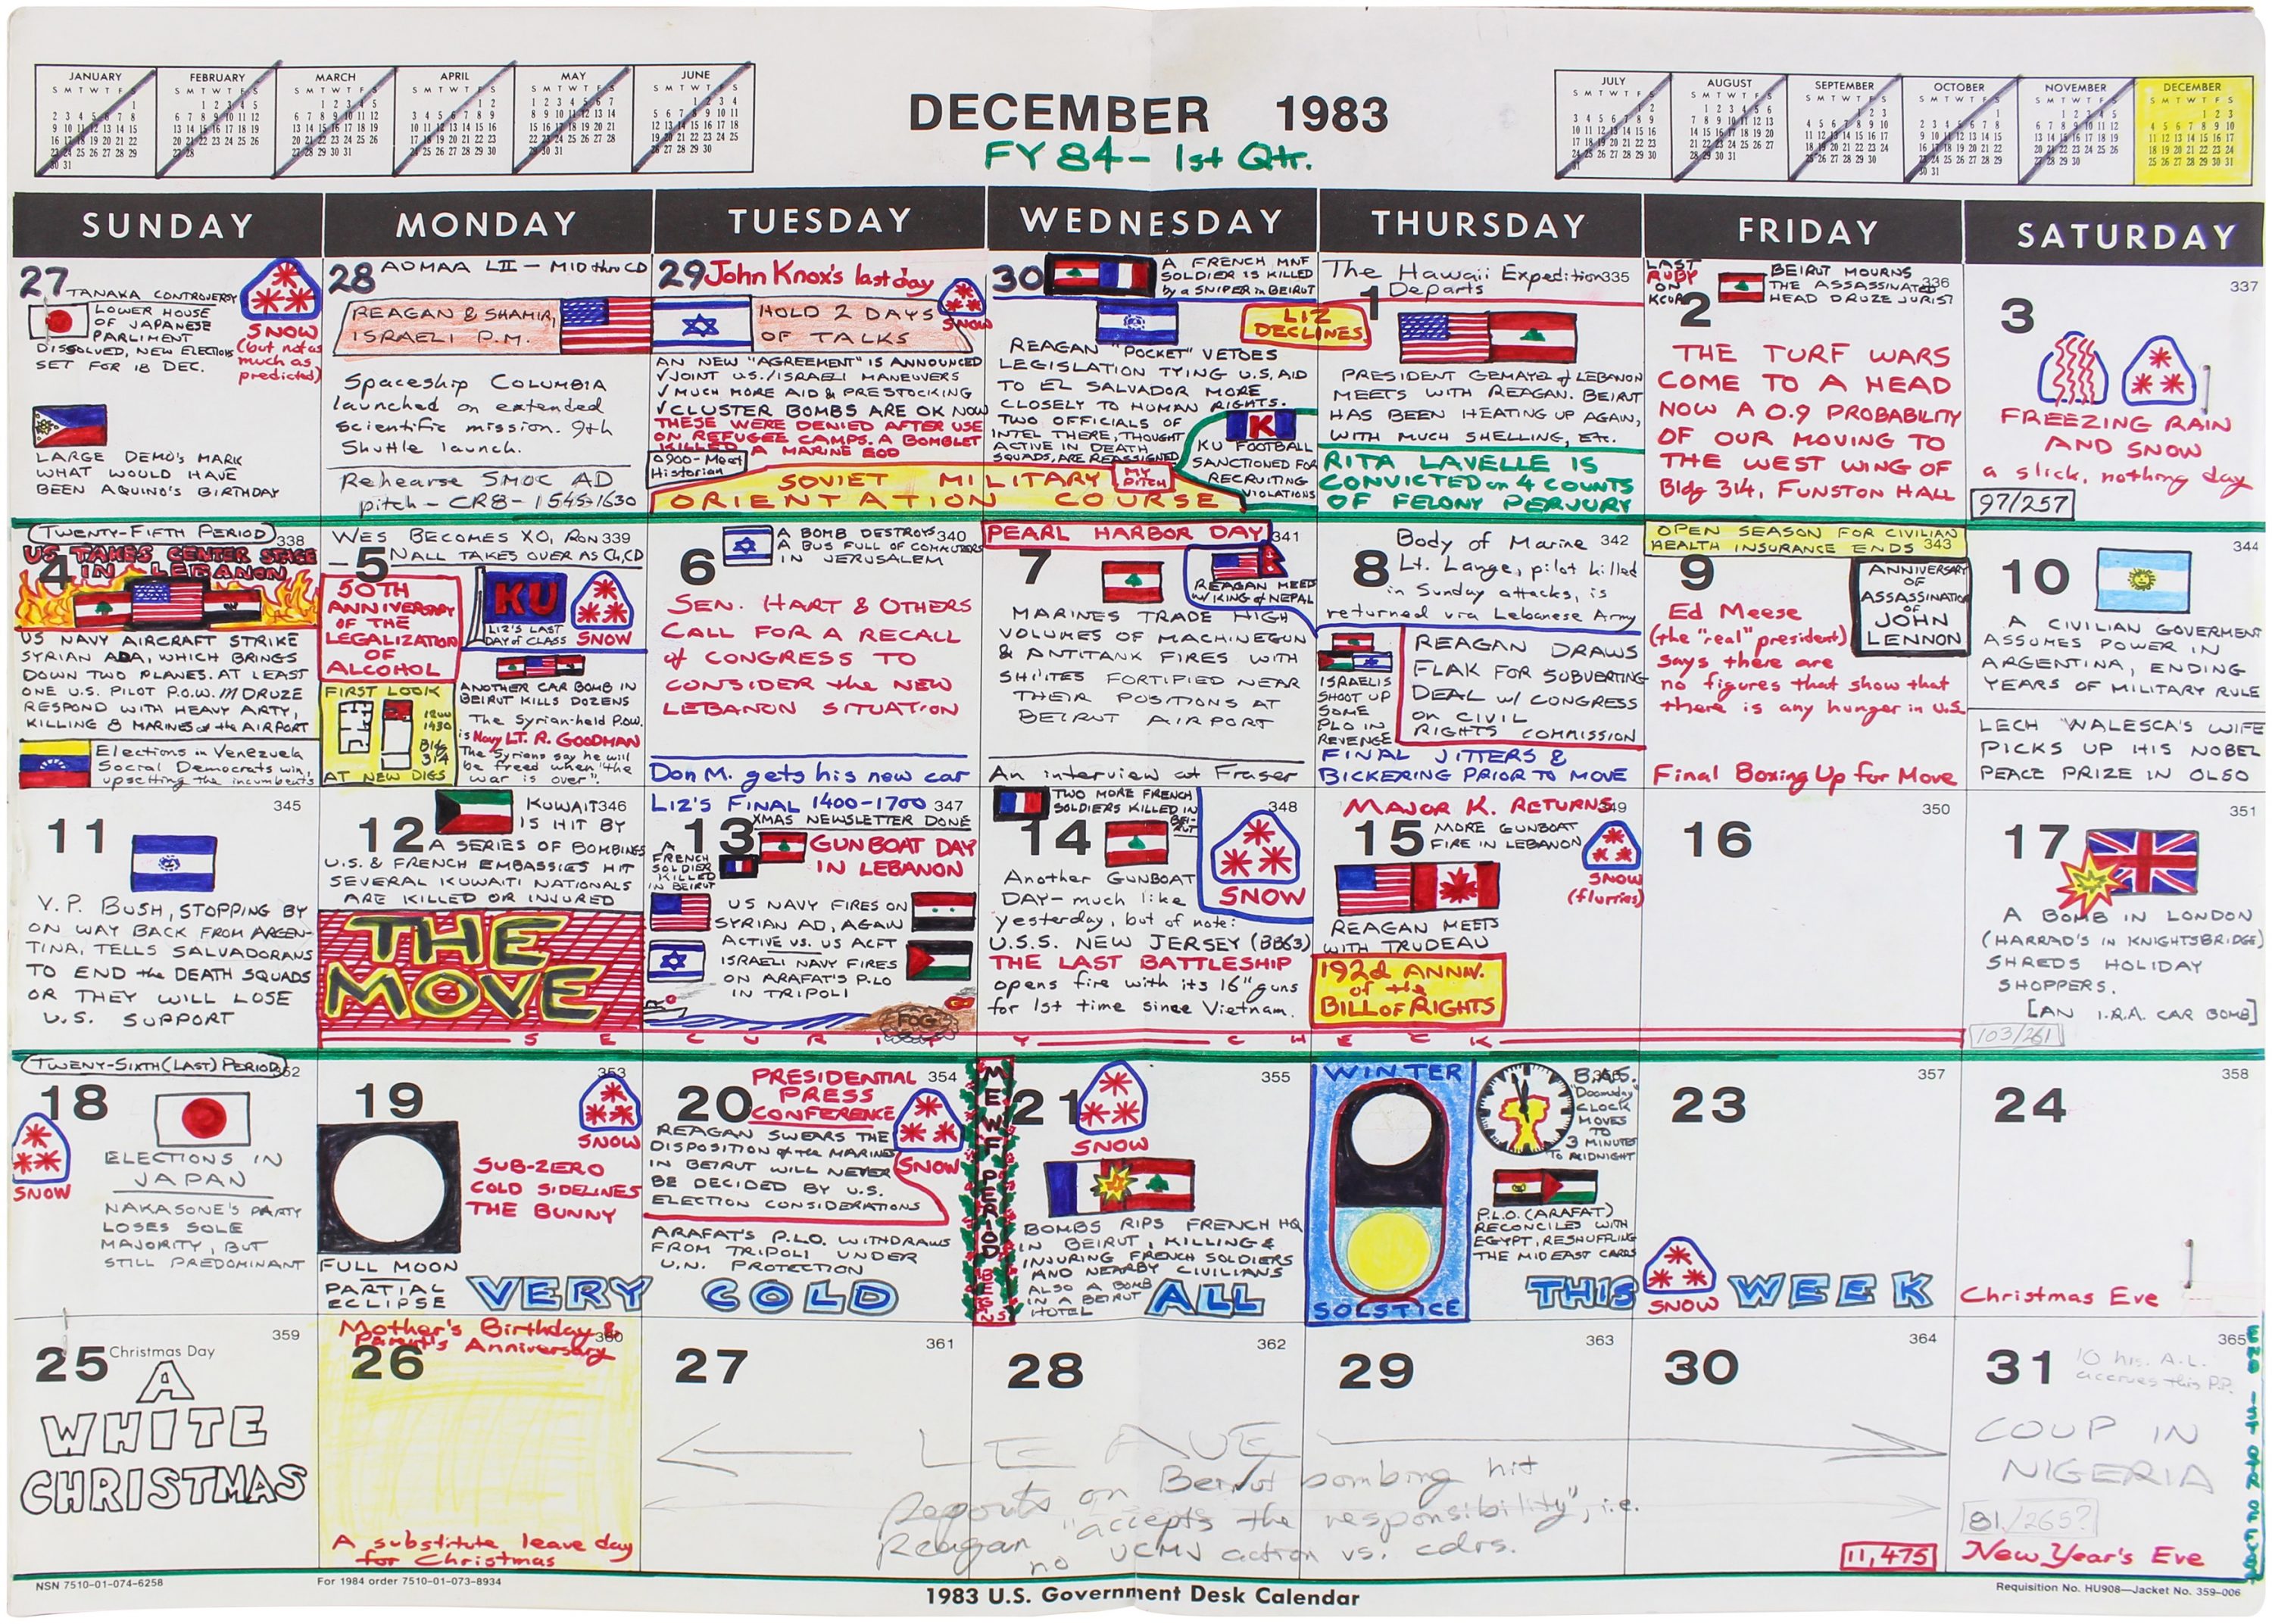 DECEMBER 1983
FY 84 - 1st Qtr.
JANUARY
FEBRUARY
MARCH
APRIL
MAY
JUNE
JULY
AUGUST
SEPTEMBER
OCTOBER
NOVEMBER
DECEMBER
SUNDAY MONDAY TUESDAY WEDNESDAY THURSDAY FRIDAY SATURDAY
27
TANAKA CONTROVERSY
LOWER HOUSE
OF JAPANESE
PARLIMENT
DISSOLVED, NEW ELECTIONS
SET FOR 18 DEC.
SNOW
(but not as
much as
predicted)
LARGE DEMO'S MARK
WHAT WOULD HAVE
BEEN AQUINO'S BIRTHDAY
28
ADMAA LII - MID thru CD
REAGAN & SHAMIR,
ISRAELI P.M.
Spaceship COLUMBIA
launched on extended
scientific mission. 9th
Shuttle launch.
Rehearse SMOC AD
pitch - CR8 - 1545-1630
29
John Knox's last day
SNOW
HOLD 2 DAYS
OF TALKS
AN NEW "AGREEMENT" IS ANNOUNCED
✓ JOINT U.S./ISRAELI MANEUVERS
✓ MUCH MORE AID & PRESTOCKING
✓ CLUSTER BOMBS ARE OK NOW
THESE WERE DENIED AFTER USE
ON REFUGEE CAMPS. A BOMBLET
KILLED A MARINE EOD
0900-Meet
Historian
SOVIET MILITARY
ORIENTATION COURSE
MY
PITCH
30
A FRENCH MNF
SOLDIER IS KILLED
by a SNIPER in BEIRUT
LIZ
DECLINES
REAGAN "POCKET" VETOES
LEGISLATION TYING U.S. AID
TO EL SALVADOR MORE
CLOSELY TO HUMAN RIGHTS.
TWO OFFICIALS OF
INTEL THERE, THOUGHT
ACTIVE IN DEATH
SQUADS, ARE REASSIGNED
K
KU FOOTBALL
SANCTIONED FOR
RECRUITING
VIOLATIONS
The Hawaii Expedition 335
Departs
1
PRESIDENT GEMAYEL of LEBANON
MEETS WITH REAGAN. BEIRUT
HAS BEEN HEATING UP AGAIN,
WITH MUCH SHELLING, ETC.
RITA LAVELLE IS
CONVICTED on 4 COUNTS
OF FELONY PERJURY
LAST
RUBY
ON
KCUR
2
336
BEIRUT MOURNS
THE ASSASSINATED
HEAD DRUZE JURIST
THE TURF WARS
COME TO A HEAD
NOW A 0.9 PROBABILITY
OF OUR MOVING TO
THE WEST WING OF
Bldg 314, FUNSTON HALL
337
3
FREEZING RAIN
AND SNOW
a slick, nothing day
97/257
TWENTY-FIFTH PERIOD 338
4
US TAKES CENTER STAGE
IN LEBANON
US NAVY AIRCRAFT STRIKE
SYRIAN ADA, WHICH BRINGS
DOWN TWO PLANES. AT LEAST
ONE U.S. PILOT P.O.W. /// DRUZE
RESPOND WITH HEAVY ARTY,
KILLING 8 MARINES at the AIRPORT
Elections in Venezuela
Social Democrats win,
upsetting the incumbents
WES BECOMES XO, RON 339
NALL TAKES OVER AS C,CD
5
50TH
ANNIVERSARY
OF THE
LEGALIZATION
OF
ALCOHOL
KU
LIZ'S LAST
DAY of CLASS
SNOW
FIRST LOOK
1200
1430
Bldg
314
AT NEW DIGS
ANOTHER CAR BOMB IN
BEIRUT KILLS DOZENS
The Syrian-held P.O.W.
is Navy LT. R. GOODMAN
The Syrians say he will
be freed when "the
war is over".
6
340
A BOMB DESTROYS
A BUS FULL OF COMMUTERS
IN JERUSALEM
SEN. HART & OTHERS
CALL FOR A RECALL
of CONGRESS TO
CONSIDER the NEW
LEBANON SITUATION
Don M. gets his new car
PEARL HARBOR DAY 341
7
REAGAN MEETS
W/KING of NEPAL
MARINES TRADE HIGH
VOLUMES OF MACHINEGUN
& ANTITANK FIRES WITH
SHIITES FORTIFIED NEAR
THEIR POSITIONS AT
BEIRUT AIRPORT
An interview at Fraser
8
342
Body of Marine
Lt. Lange, pilot killed
in Sunday attacks, is
returned via Lebanese Army
ISRAELIS
SHOOT UP
SOME
PLO IN
REVENGE
REAGAN DRAWS
FLAK FOR SUBVERTING
DEAL w/ CONGRESS
on CIVIL
RIGHTS COMMISSION
FINAL JITTERS &
BICKERING PRIOR TO MOVE
OPEN SEASON FOR CIVILIAN
HEALTH INSURANCE ENDS 343
9
ANNIVERSARY
OF
ASSASSINATION
OF
JOHN
LENNON
Ed Meese
(the "real" president)
says there are
no figures that show that
there is any hunger in U.S.
Final Boxing Up for Move
344
10
A CIVILIAN GOVERMENT
ASSUMES POWER IN
ARGENTINA, ENDING
YEARS OF MILITARY RULE
LECH WALESCA'S WIFE
PICKS UP HIS NOBEL
PEACE PRIZE IN OLSO
345
11
V.P. BUSH, STOPPING BY
ON WAY BACK FROM ARGEN-
TINA, TELLS SALVADORANS
TO END the DEATH SQUADS
OR THEY WILL LOSE
U.S. SUPPORT
12
KUWAIT 346
IS HIT BY
A SERIES OF BOMBINGS
U.S. & FRENCH EMBASSIES HIT
SEVERAL KUWAITI NATIONALS
ARE KILLED OR INJURED
THE
MOVE
LIZ'S FINAL 1400-1700 347
XMAS NEWSLETTER DONE
13
A
FRENCH
SOLDIER
KILLED
IN BEIRUT
GUNBOAT DAY
IN LEBANON
US NAVY FIRES ON
SYRIAN AD, AGAIN
ACTIVE VS. US ACFT
ISRAELI NAVY FIRES
ON ARAFAT'S P.LO
IN TRIPOLI
FOG
SECURITY CHECK
TWO MORE FRENCH
SOLDIERS KILLED IN
BEI-
RUT
348
14
SNOW
Another GUNBOAT
DAY - much like
yesterday, but of note:
U.S.S. NEW JERSEY (BB63)
THE LAST BATTLESHIP
opens fire with its 16" guns
for 1st time since Vietnam.
MAJOR K. RETURNS 349
15
MORE GUNBOAT
FIRE IN LEBANON
SNOW
(flurries)
REAGAN MEETS
WITH TRUDEAU
192d ANNIV.
of the
BILL of RIGHTS
350
16
351
17
A BOMB IN LONDON
(HARRAD'S IN KNIGHTSBRIDGE)
SHREDS HOLIDAY
SHOPPERS.
[AN I.R.A. CAR BOMB]
103/261
TWENY-SIXTH (LAST) PERIOD 352
18
SNOW
ELECTIONS IN
JAPAN
NAKASONE'S PARTY
LOSES SOLE
MAJORITY, BUT
STILL PREDOMINANT
353
19
SNOW
SUB-ZERO
COLD SIDELINES
THE BUNNY
FULL MOON
PARTIAL
ECLIPSE
VERY COLD ALL THIS WEEK
354
20
PRESIDENTIAL
PRESS
CONFERENCE
SNOW
REAGAN SWEARS THE
DISPOSITION of the MARINES
IN BEIRUT WILL NEVER
BE DECIDED BY U.S.
ELECTION CONSIDERATIONS
ARAFAT'S P.L.O. WITHDRAWS
FROM TRIPOLI UNDER
U.N. PROTECTION
355
21
SNOW
BOMBS RIPS FRENCH HQ
IN BEIRUT, KILLING &
INJURING FRENCH SOLDIERS
AND NEARBY CIVILIANS
ALSO A BOMB
IN A BEIRUT
HOTEL
WINTER
SOLSTICE
B.A.S.
"Doomsday"
CLOCK
MOVES
TO
3 MINUTES
TO MIDNIGHT
P.L.O. (ARAFAT)
RECONCILES WITH
EGYPT, RESHUFFLING
THE MIDEAST CARDS
357
23
SNOW
358
24
Christmas Eve
359
25 Christmas Day
A
WHITE
CHRISTMAS
Mother's Birthday &
Parent's Anniversary
360
26
A substitute leave day
for Christmas
361
27
362
28
363
29
364
30
LEAVE
Reports on Beirut bombing hit
Reagan "accepts the responsibility", i.e.
no UCMJ action vs. cdrs.
11,475
365
31
10 hrs. A.L.
accrues this P.P.
COUP IN
NIGERIA
81/265?
New Year's Eve
NSN 7510-01-074-6258
For 1984 order 7510-01-073-8934
1983 U.S. Government Desk Calendar
Requisition No. HU908—Jacket No. 359-006